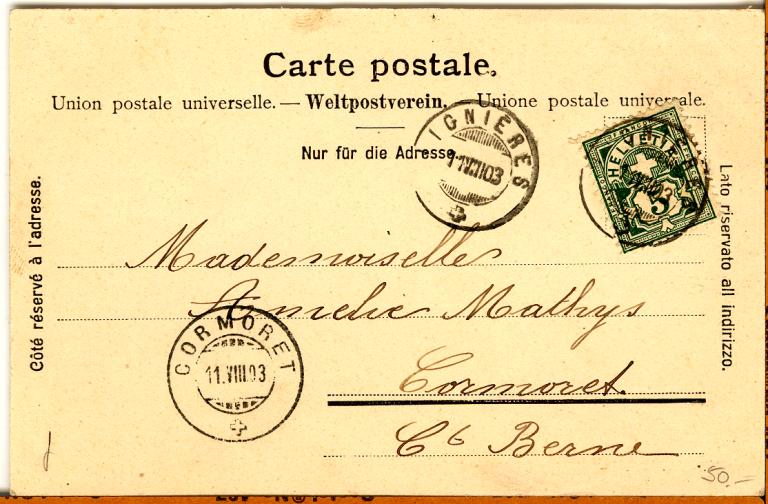 Carte postale.
Union postale universelle. — Weltpostverein. — Unione postale universale.
Nur für die Adresse.
Côté réservé à l'adresse.
Lato riservato all indirizzo.
IGNIÈRES
HELVETIA
5
Mademoiselle
Amelie Mathys
CORMORET
11.VIII.03
Cormoret
Ct Berne
50.-